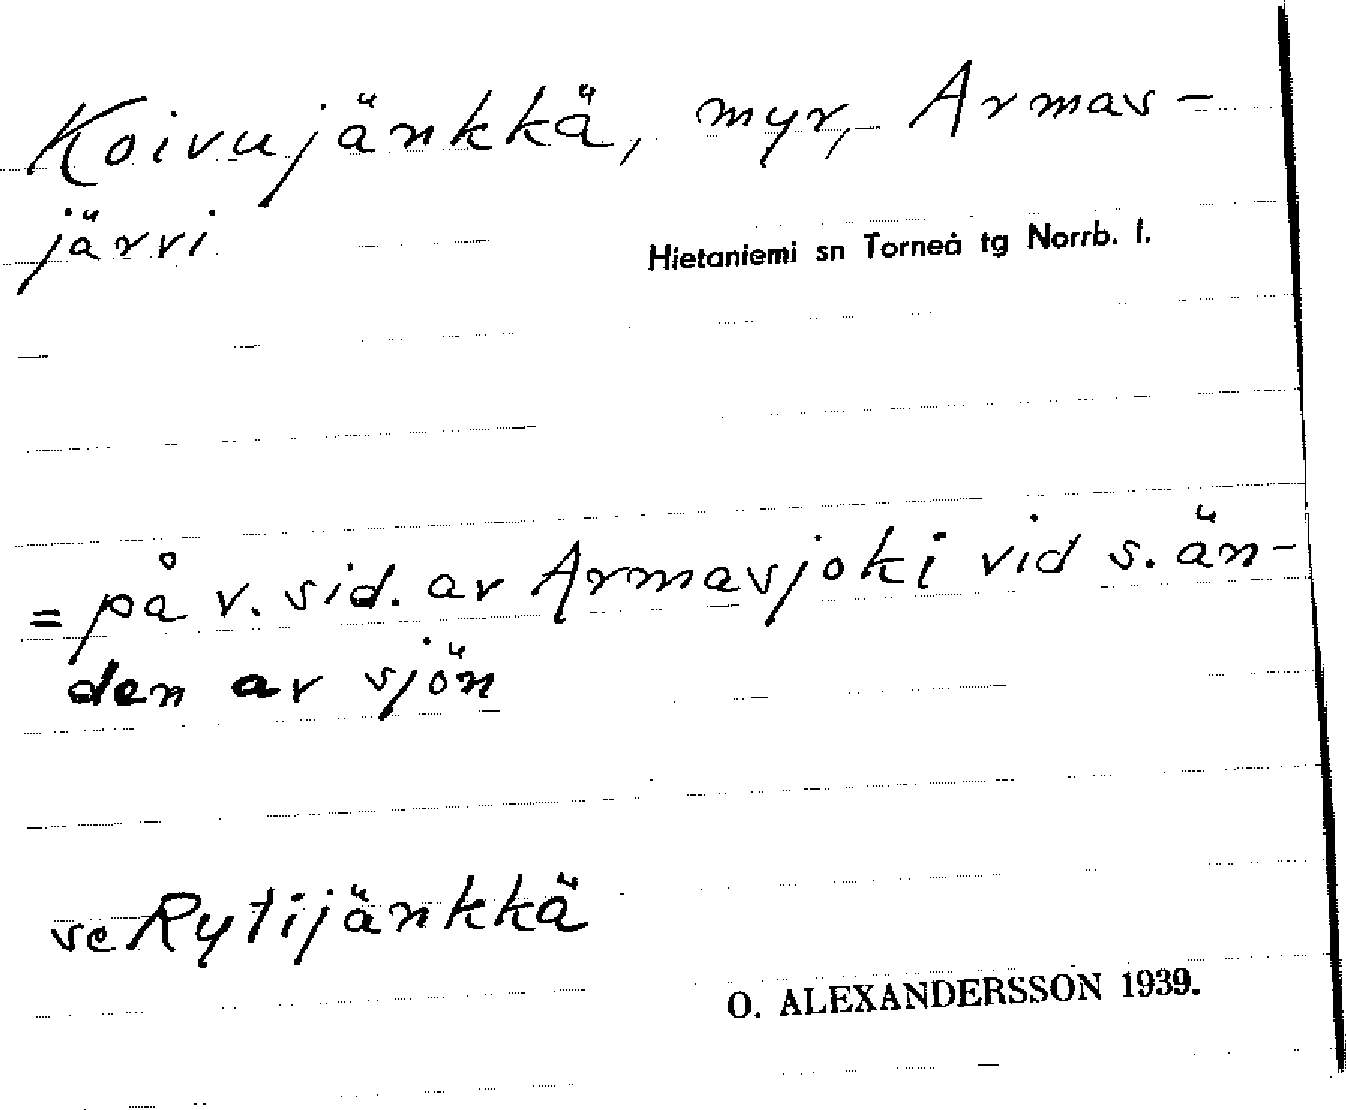 Koivujänkkä, myr, Armas-
järvi
Hietaniemi sn Torneå tg Norrb. l.
= på v. sid. av Armasjoki vid s. än-
den av sjön
se Rytijänkkä
O. ALEXANDERSSON 1939.